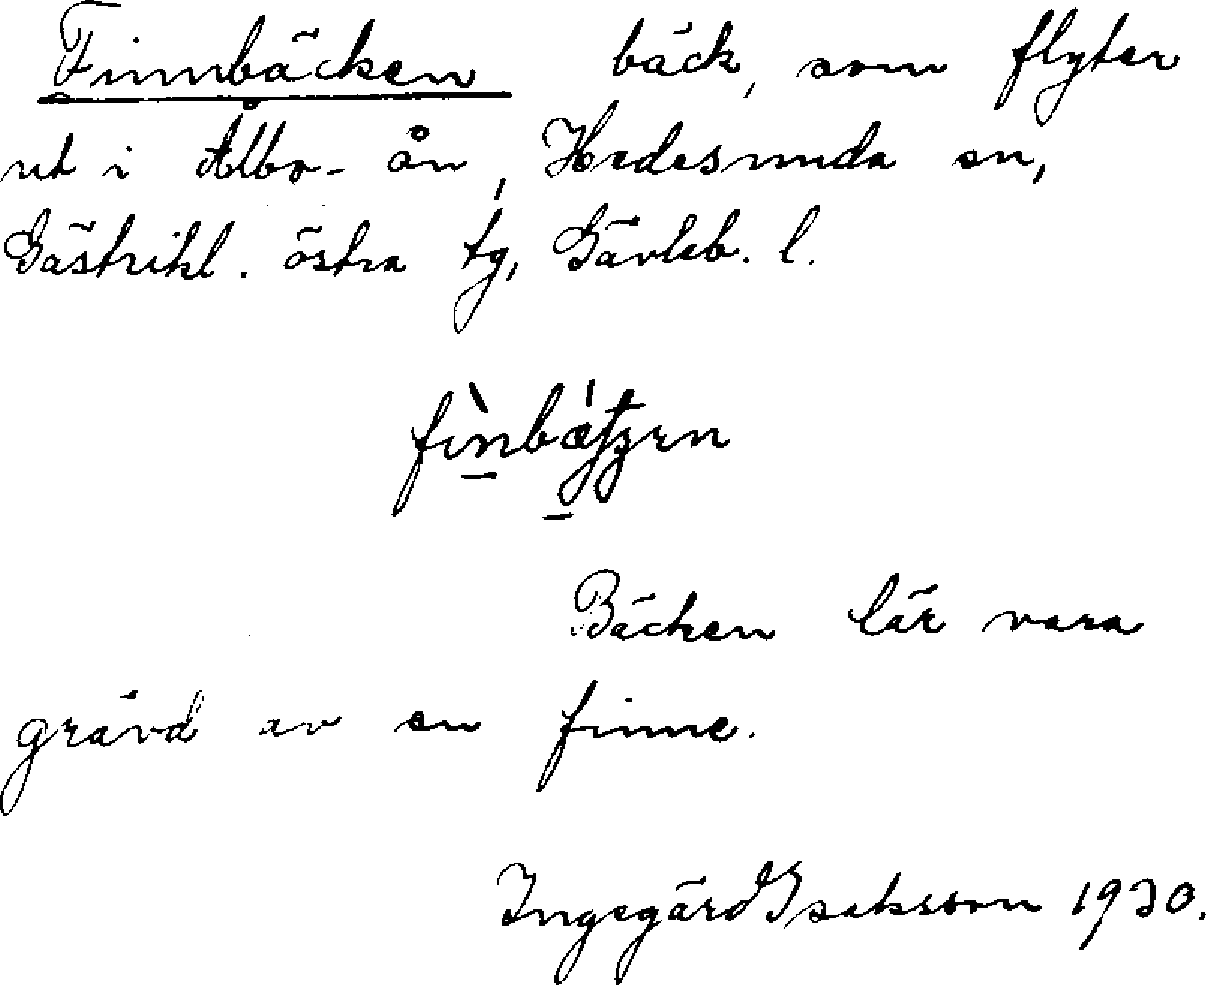 Finnbäcken bäck, som flyter
ut i Ålbo-ån, Hedesunda sn,
Gästrikl. östra tg, Gävleb. l.
Bäcken lär vara
grävd av en finne.
Ingegärd Isaksson 1930.